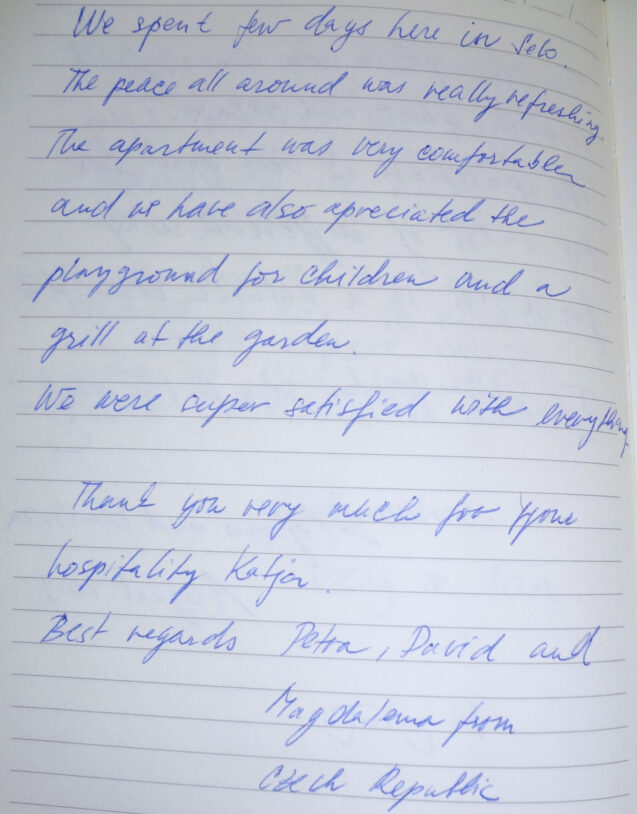 We spent few days here in Selo.
The peace all around was really refreshing.
The apartment was very comfortable
and we have also apreciated the
playground for children and a
grill at the garden.
We were super satisfied with everything
Thank you very much for your
hospitality Katja.
Best regards Petra, David and
Magdalena from
Czech Republic